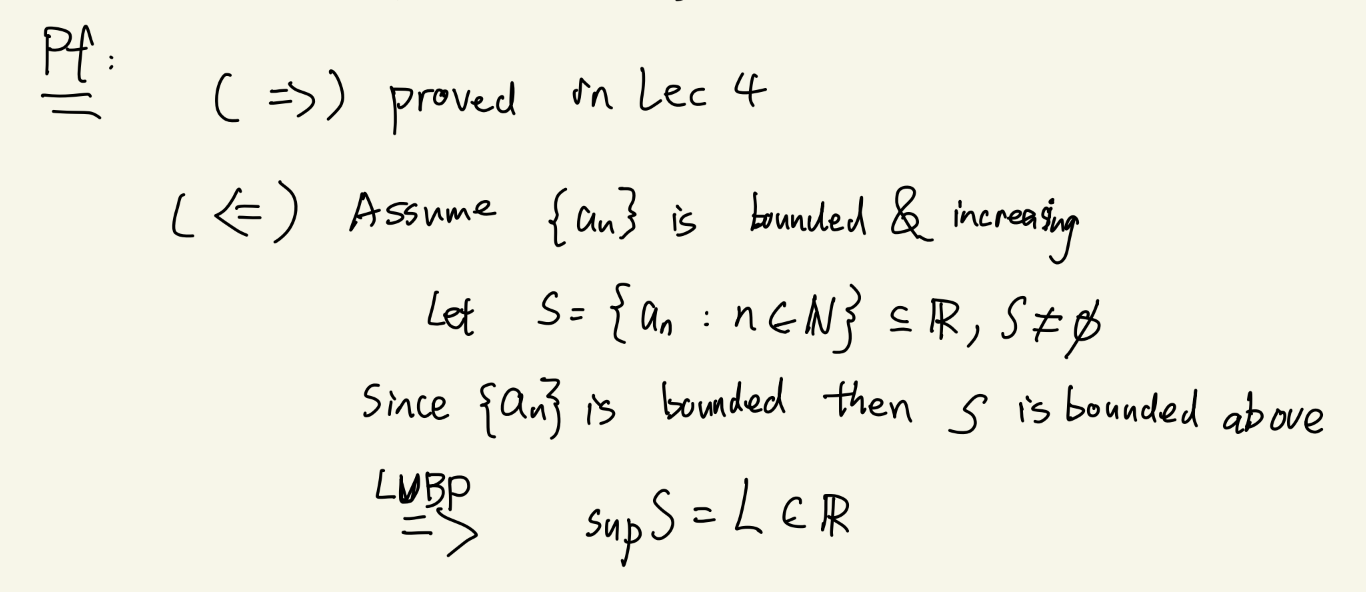 Pf:
(=>) proved in Lec 4
(<=) Assume {aₙ} is bounded & increasing
Let S = {aₙ : n ∈ ℕ} ⊆ ℝ, S ≠ ∅
Since {aₙ} is bounded then S is bounded above
LUBP
=> sup S = L ∈ ℝ